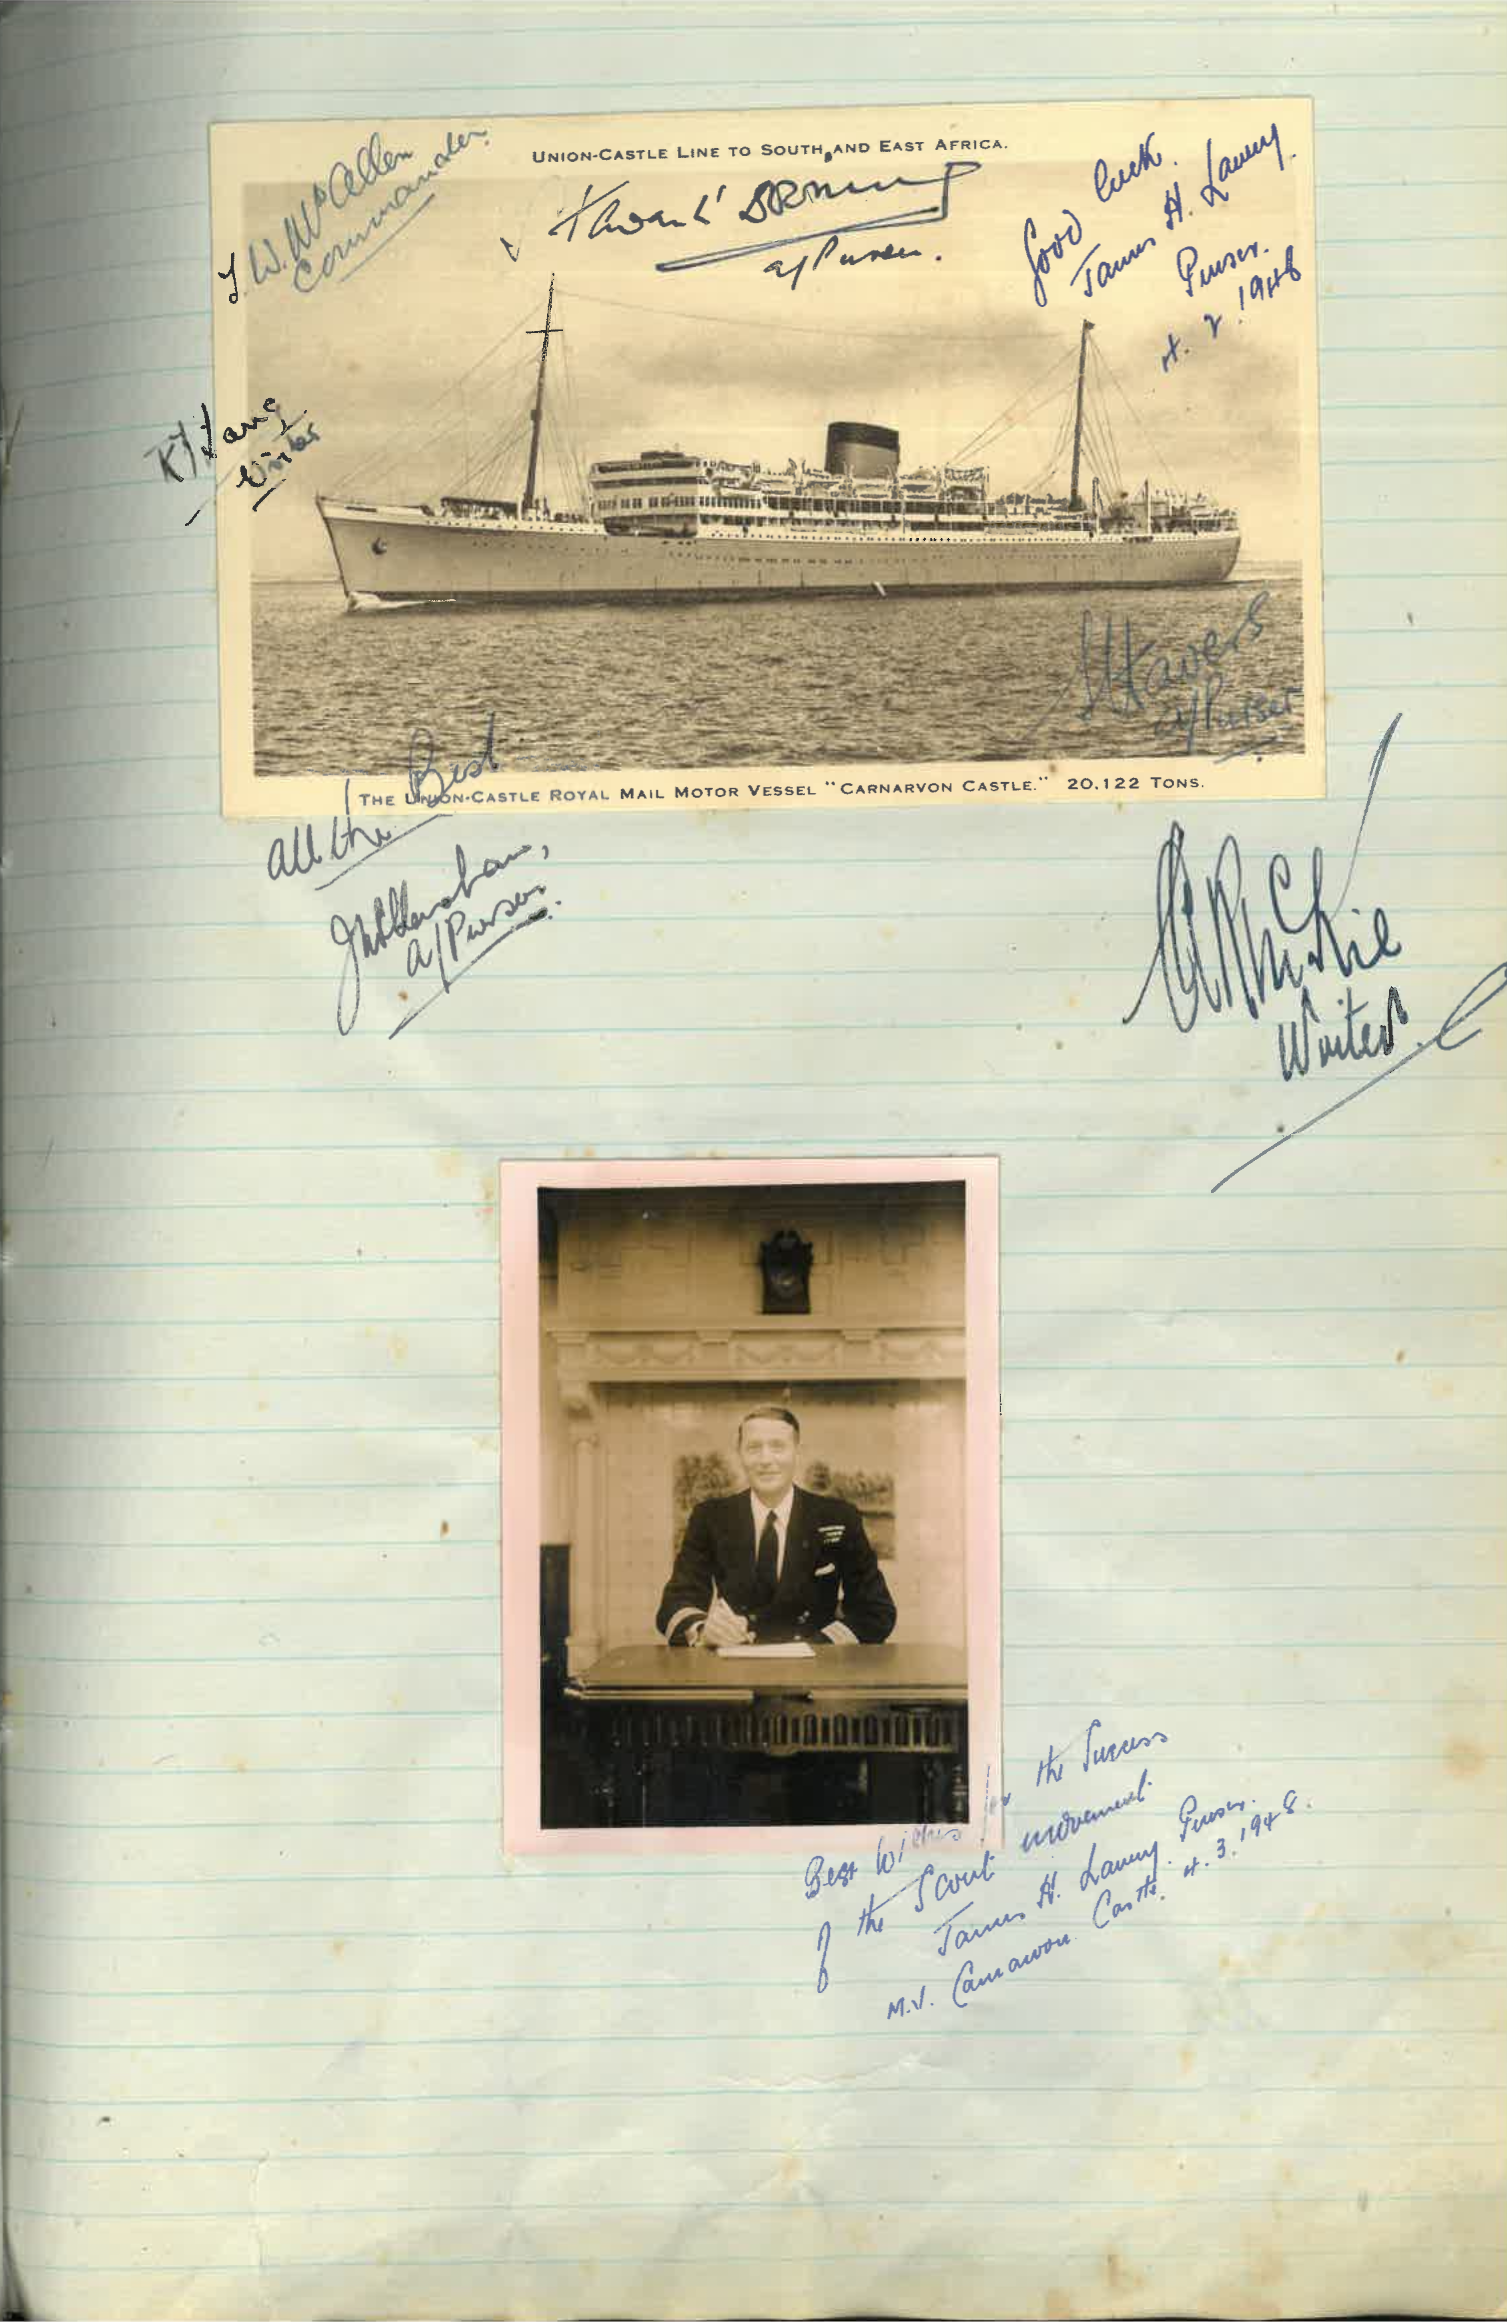 UNION-CASTLE LINE TO SOUTH, AND EAST AFRICA.
J. W. McAllen
Commander.
a/Purser.
Good luck.
James H. Lavery.
Purser.
4. 2. 1948
Writer
a/Purser
THE UNION-CASTLE ROYAL MAIL MOTOR VESSEL "CARNARVON CASTLE." 20,122 TONS.
All the Best
a/Purser.
Writer.
Best Wishes for the Success
of the Scout movement
James H. Lavery. Purser.
M.V. Carnarvon Castle. 4.3.1948.